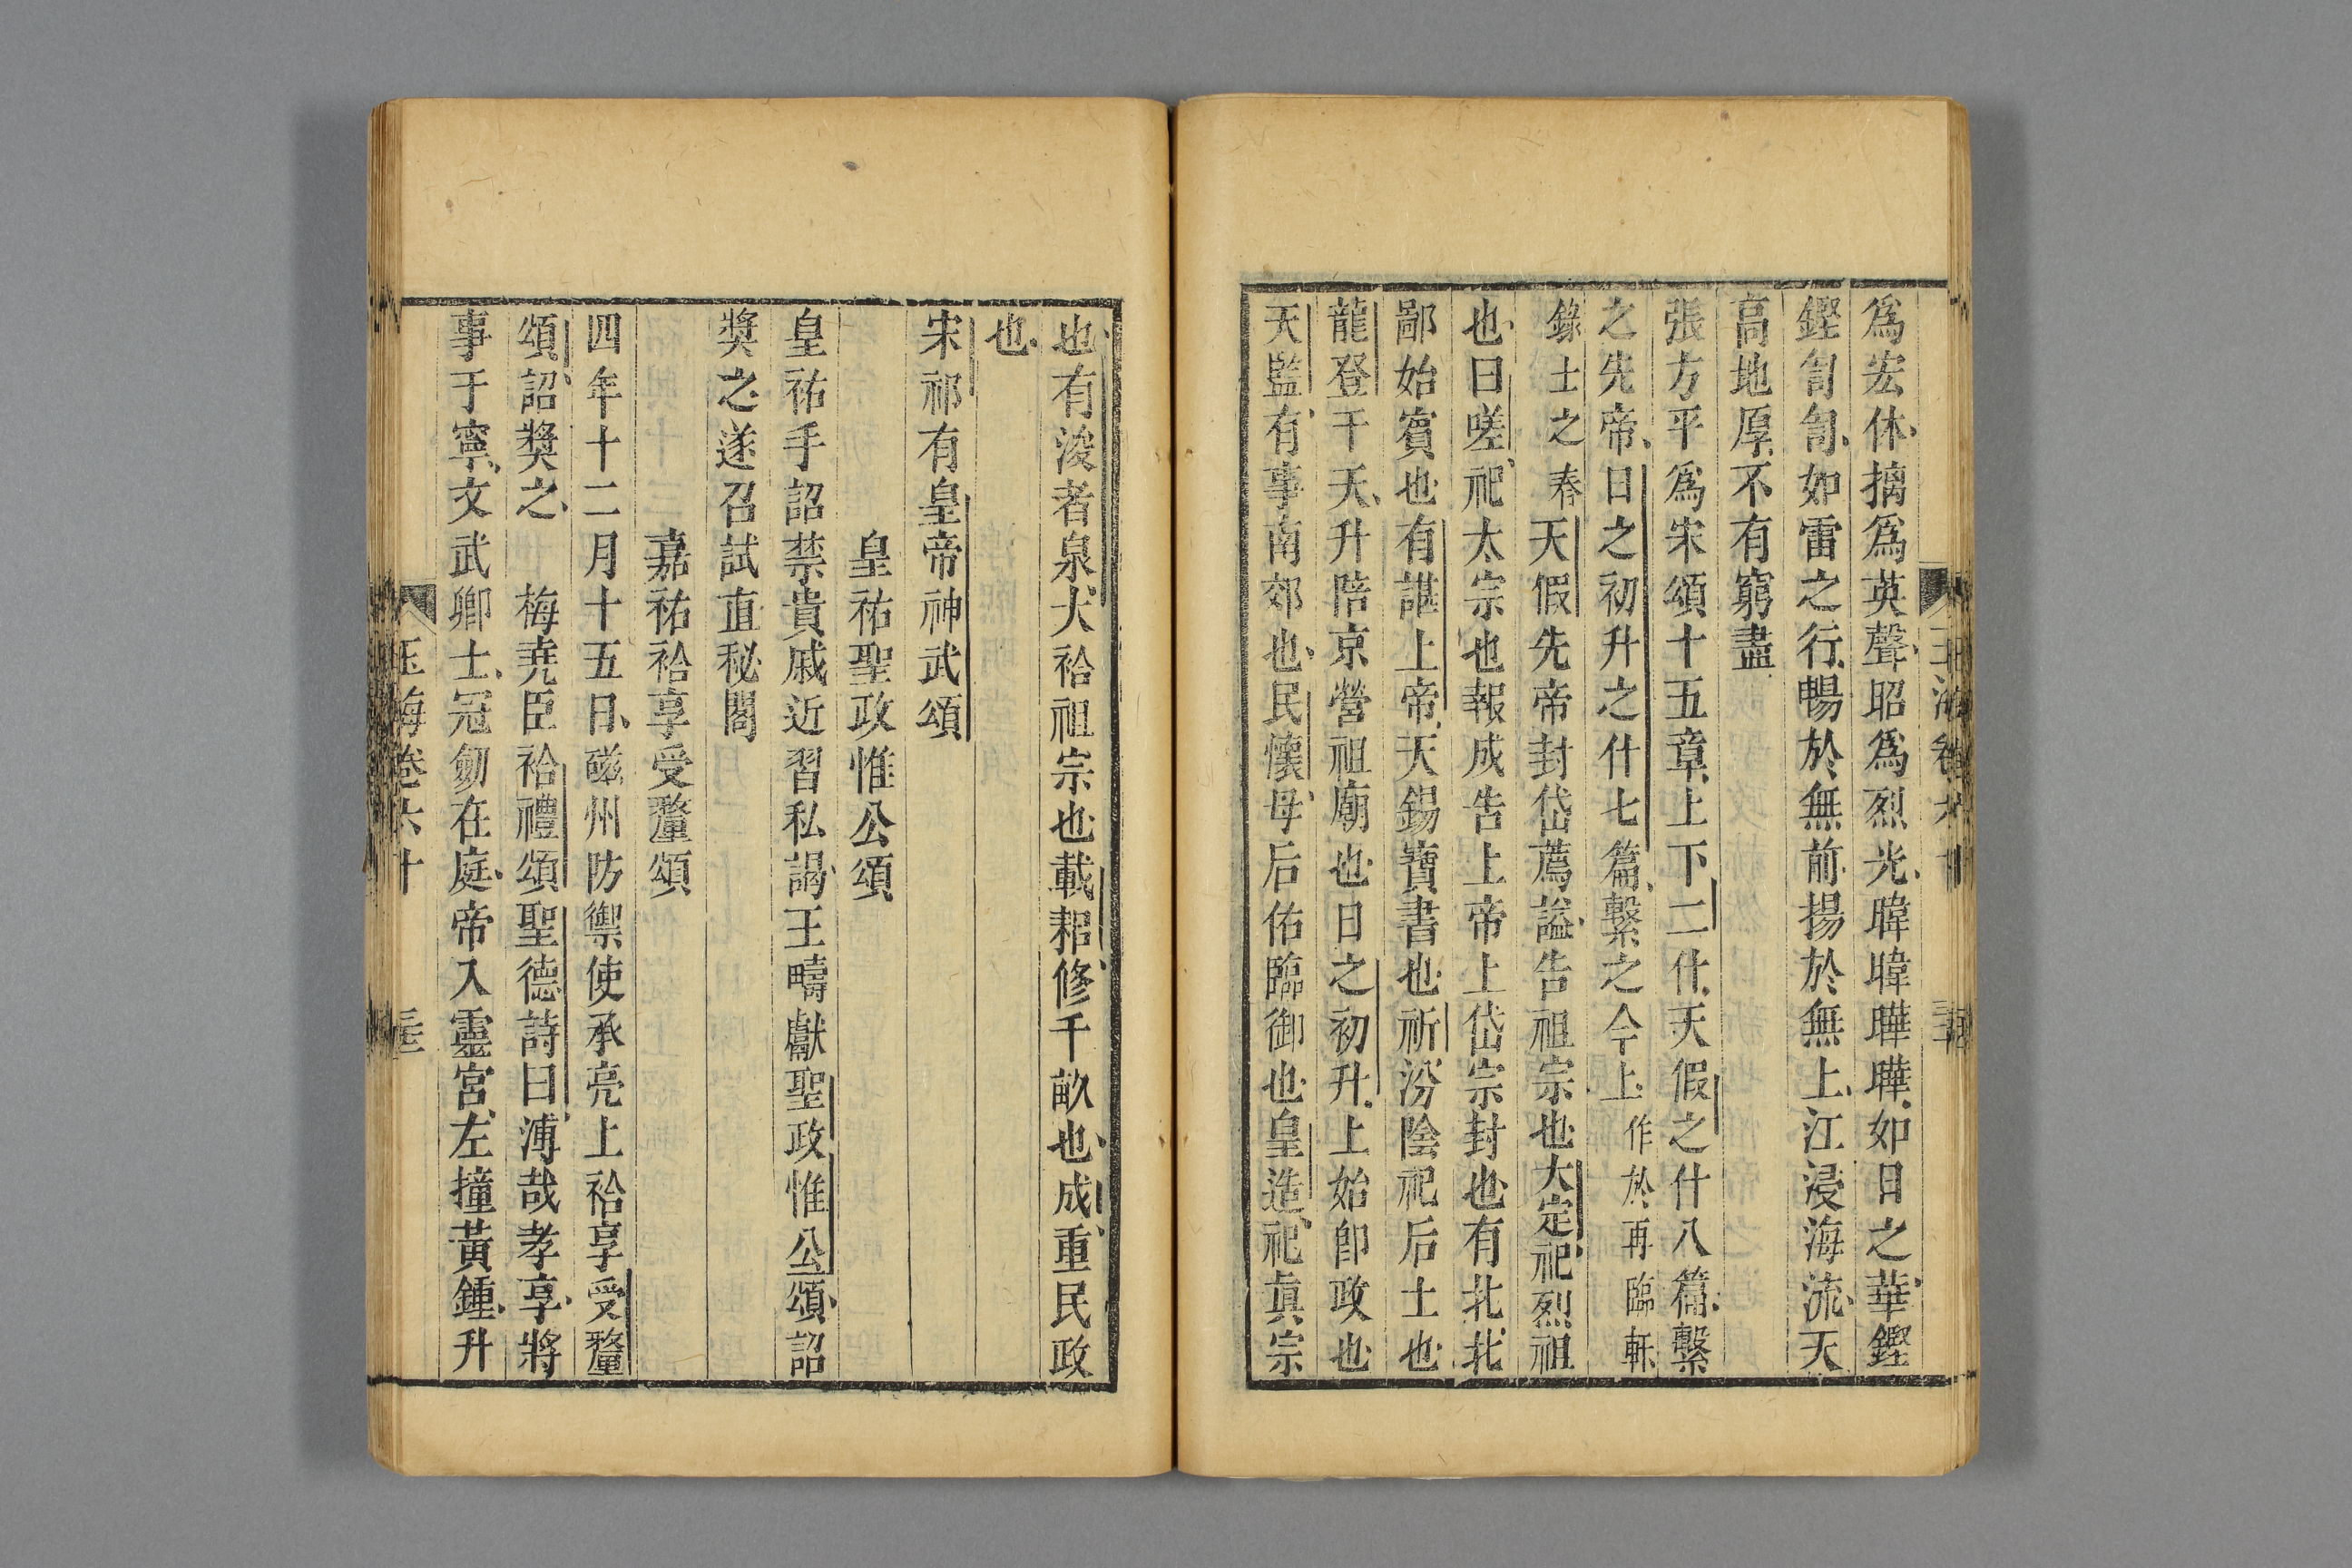 爲宏休摛爲英聲昭爲烈光暐暐曄曄如日之華鏗
鏗訇訇如雷之行暢於無前揚於無上江浸海流天
高地厚不有窮盡
張方平爲宋頌十五章上下二什天假之什八篇繫
之先帝日之初升之什七篇繫之今上作於再臨軒
錄士之春天假先帝封岱薦謚告祖宗也大定祀烈祖
也曰嗟祀太宗也報成告上帝上岱宗封也有北北
鄙始賓也有諶上帝天錫寶書也祈汾陰祀后土也
龍登于天升陪京營祖廟也日之初升上始卽政也
天監有事南郊也民懷母后佑臨御也皇造祀眞宗
玉海卷六十
也有浚者泉大祫祖宗也載耜修千畝也成重民政
也
宋祁有皇帝神武頌
皇祐聖政惟公頌
皇祐手詔禁貴戚近習私謁王疇獻聖政惟公頌詔
奬之遂召試直秘閣
嘉祐祫享受釐頌
四年十二月十五日磁州防禦使承亮上祫享受釐
頌詔奬之 梅堯臣祫禮頌聖德詩曰溥哉孝享將
事于寧文武卿士冠劒在庭帝入靈宮左撞黃鍾升
玉海卷六十